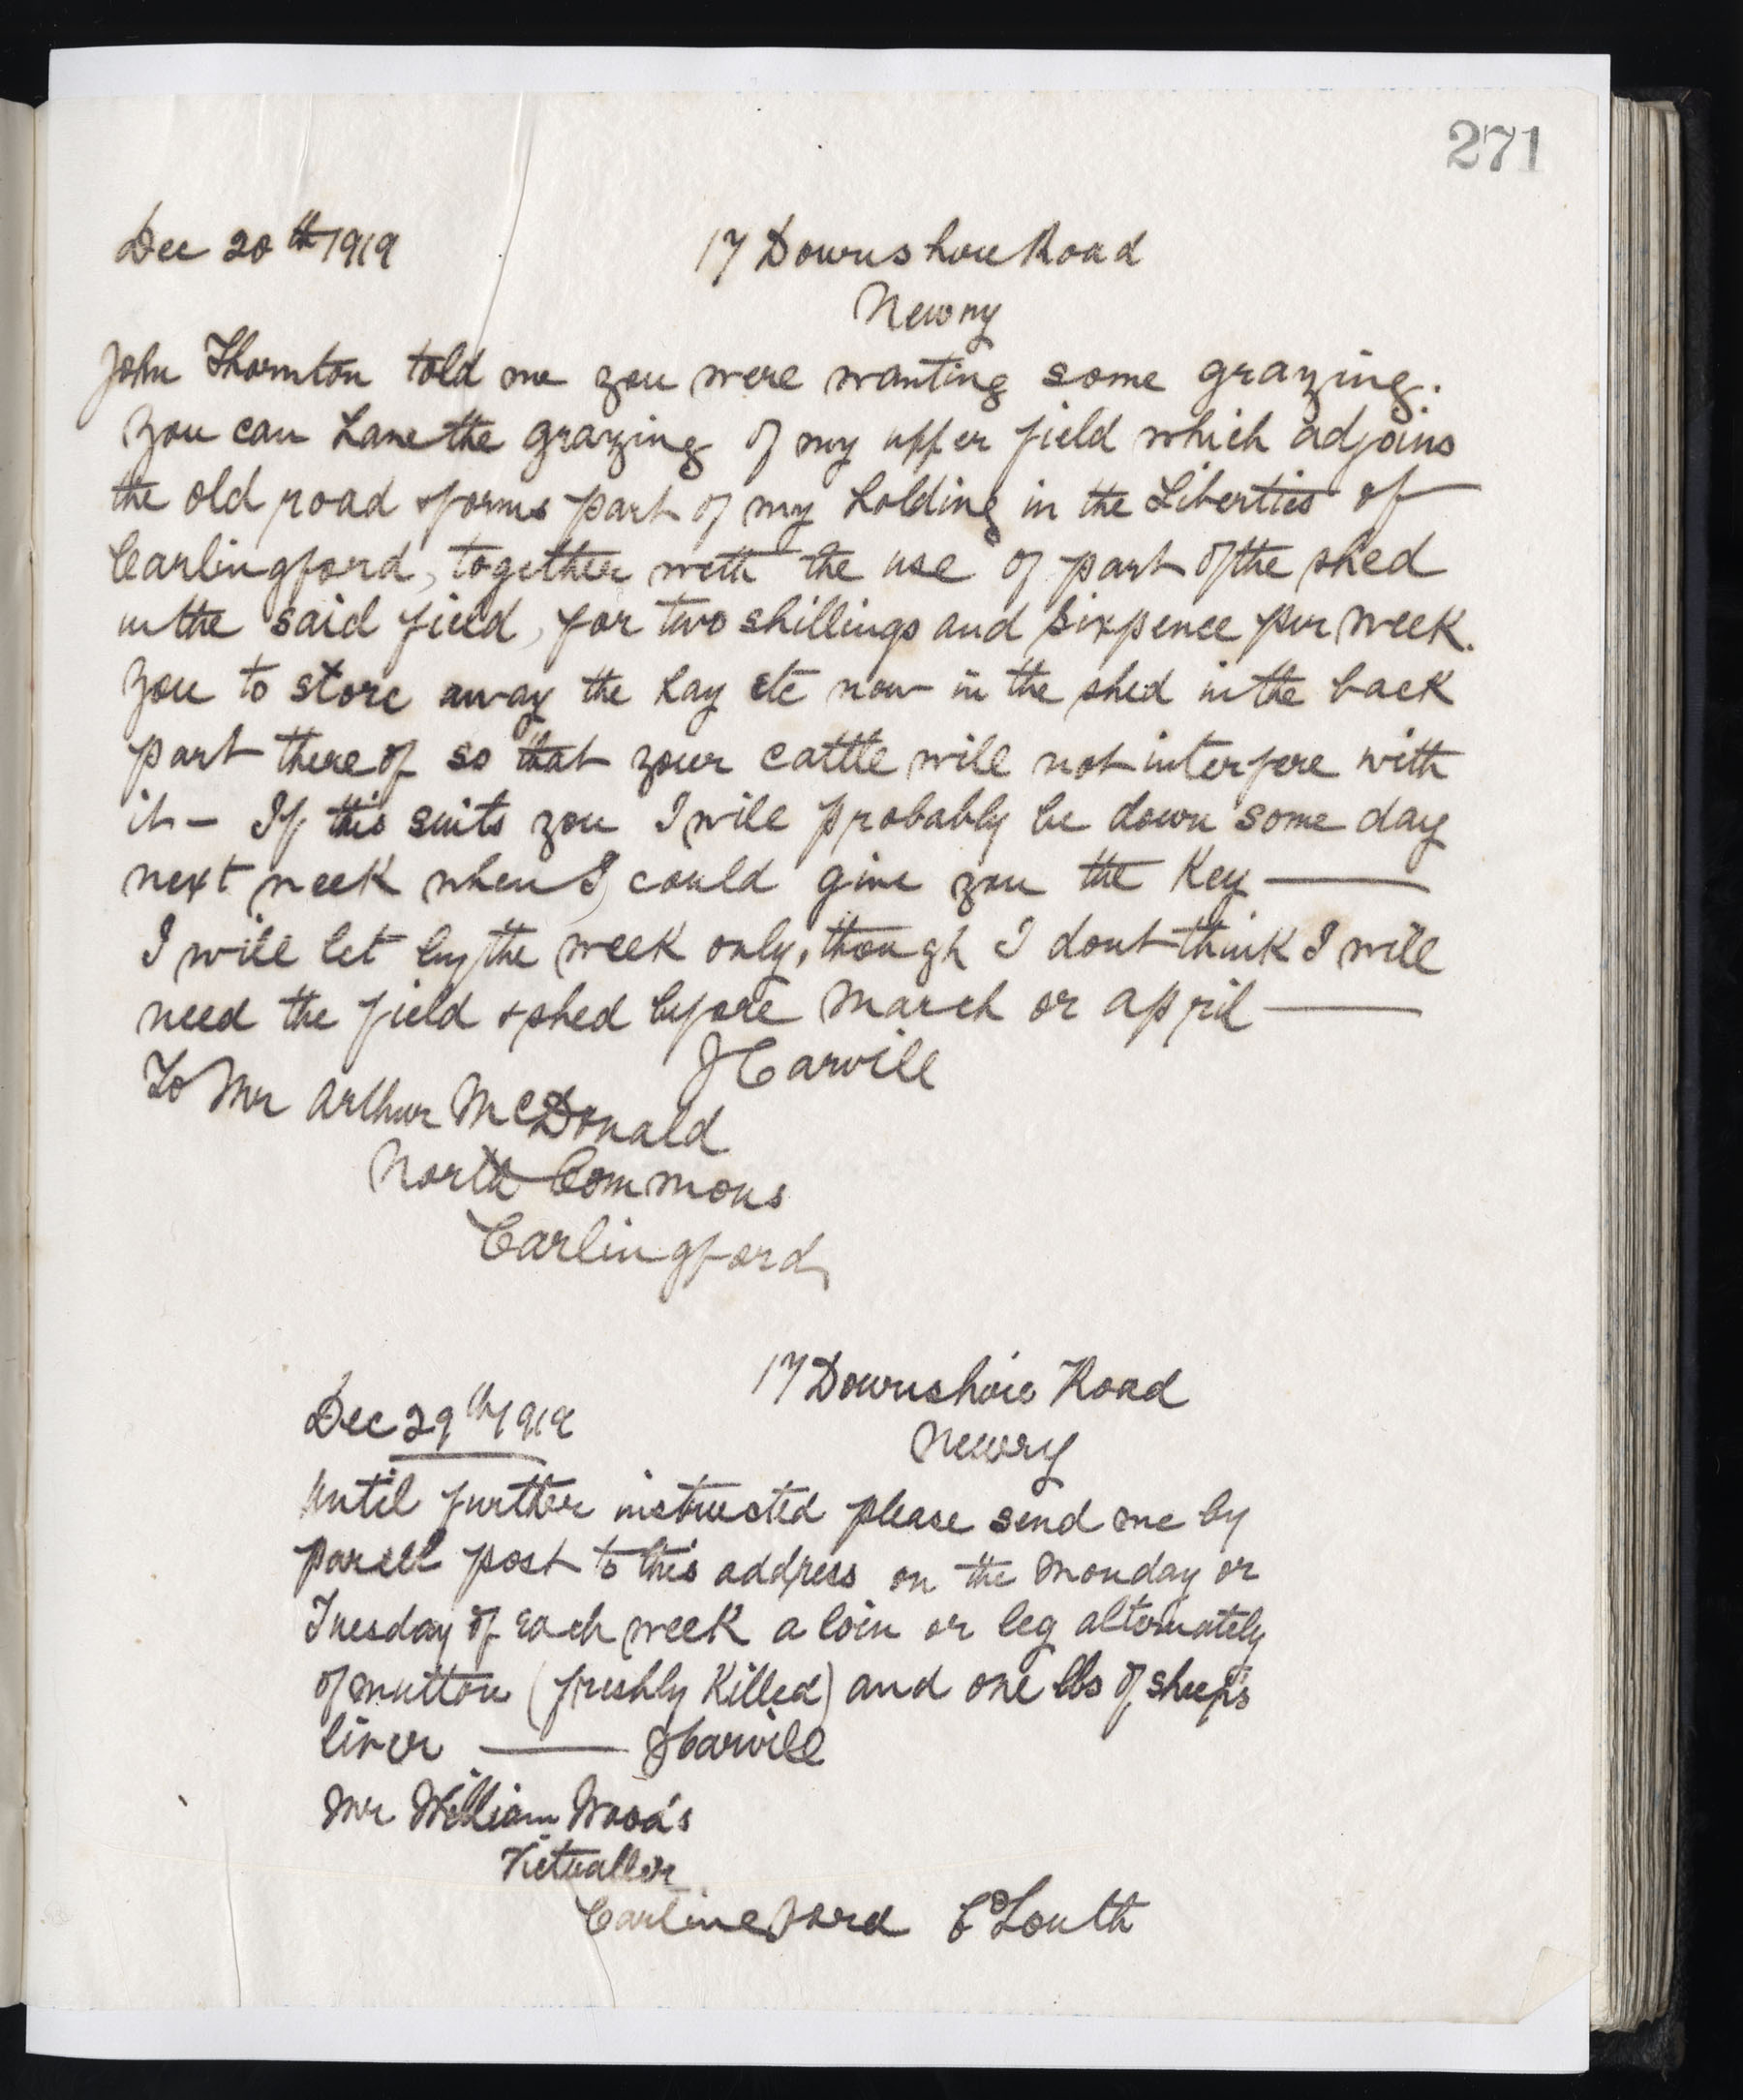 271
Dec 20th 1919 17 Downshire Road
Newry
John Thornton told me you were wanting some grazing.
You can have the grazing of my upper field which adjoins
the old road & forms part of my holding in the Liberties of
Carlingford, together with the use of part of the shed
in the said field, for two shillings and sixpence per week.
You to store away the hay etc now in the shed in the back
part there of so that your cattle will not interfere with
it - If this suits you I will probably be down some day
next week when I could give you the key —
I will let by the week only, though I dont think I will
need the field & shed before March or April —
J Carvill
To Mr Arthur McDonald
North Commons
Carlingford
17 Downshire Road
Dec 29th 1919
Newry
Until further instructed please send me by
parcel post to this address on the Monday or
Tuesday of each week a loin or leg alternately
of mutton (freshly killed) and one lbs of sheep's
liver — J Carvill
Mr William Woods
Victualler
Carlingford Co Louth